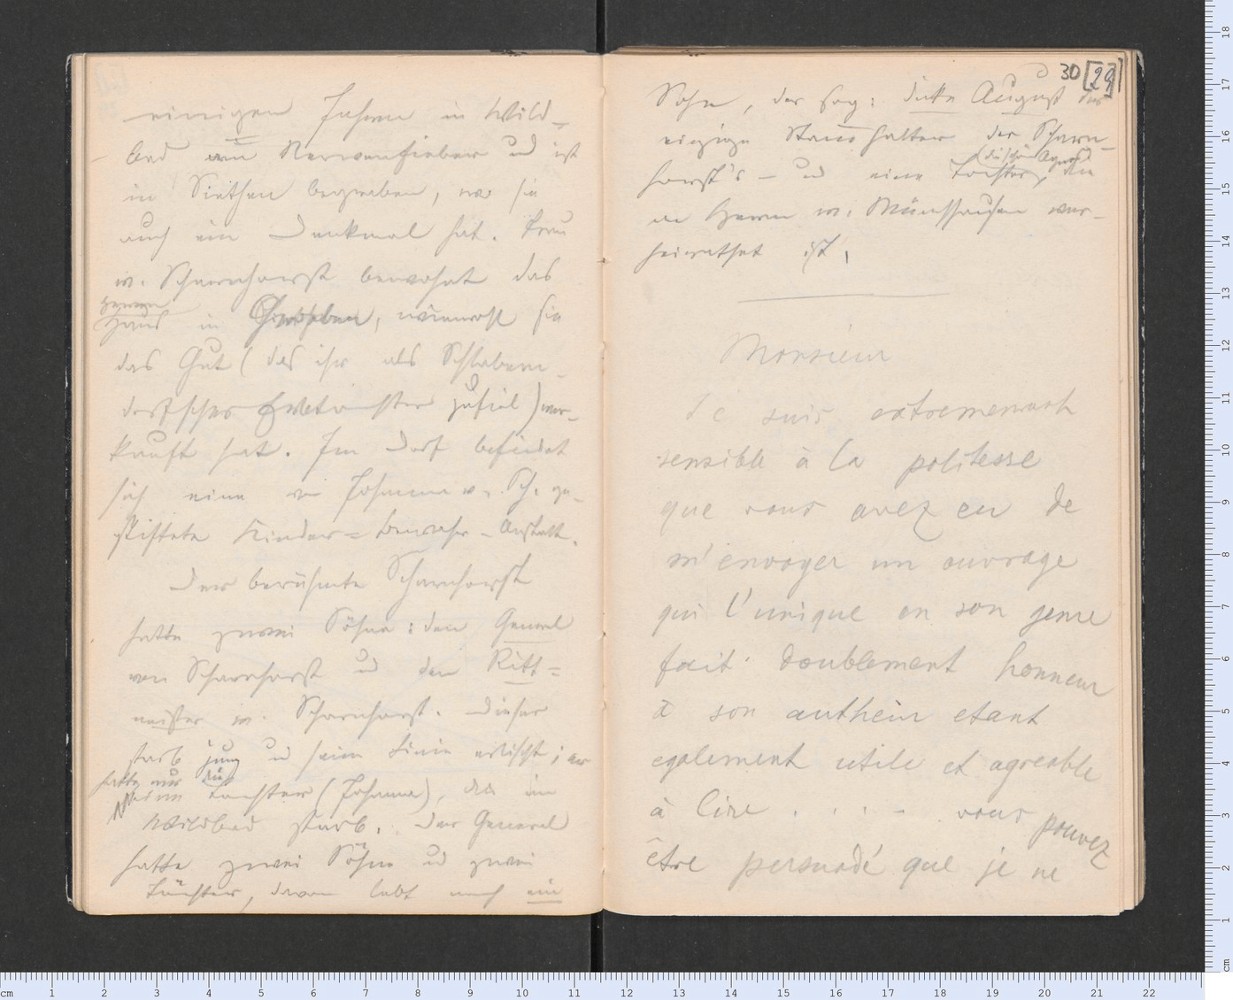 einigen Jahren in Wild-
bad am Nervenfieber und ist
in Siethen begraben, wo sie
auch ein Denkmal hat. Frau
v. Scharnhorst bewohnt das
Herren
Haus in Gröben, wiewohl sie
das Gut (das ihr als Schlabern-
dorfsches zufiel) ver-
kauft hat. Im Dorf befindet
sich eine von Johanna v. Sch. ge-
stiftete Kinder-Bewahr-Anstalt.
Der berühmte Scharnhorst
hatte zwei Söhne: den General
von Scharnhorst und den Ritt-
meister v. Scharnhorst. Dieser
starb jung und seine Linie erlischt; er
hatte nur die
eine Tochter (Johanna), die in
Wildbad starb. Der General
hatte zwei Söhne und zwei
Töchter, davon lebt noch ein
30 [29]
Sohn, der sog: dicke August der
einzige Stammhalter der Scharn-
horst's – und eine Tochter, die
(die schöne Agnes)
an Herrn v. Münchhausen ver-
heirathet ist.
Monsieur
Je suis extremement
sensible à la politesse
que vous avez eu de
m'envoyer un ouvrage
qui l'unique en son genre
fait doublement honneur
à son autheur etant
egalement utile et agreable
à lire . . . - vous pouvez
être persuadé que je ne